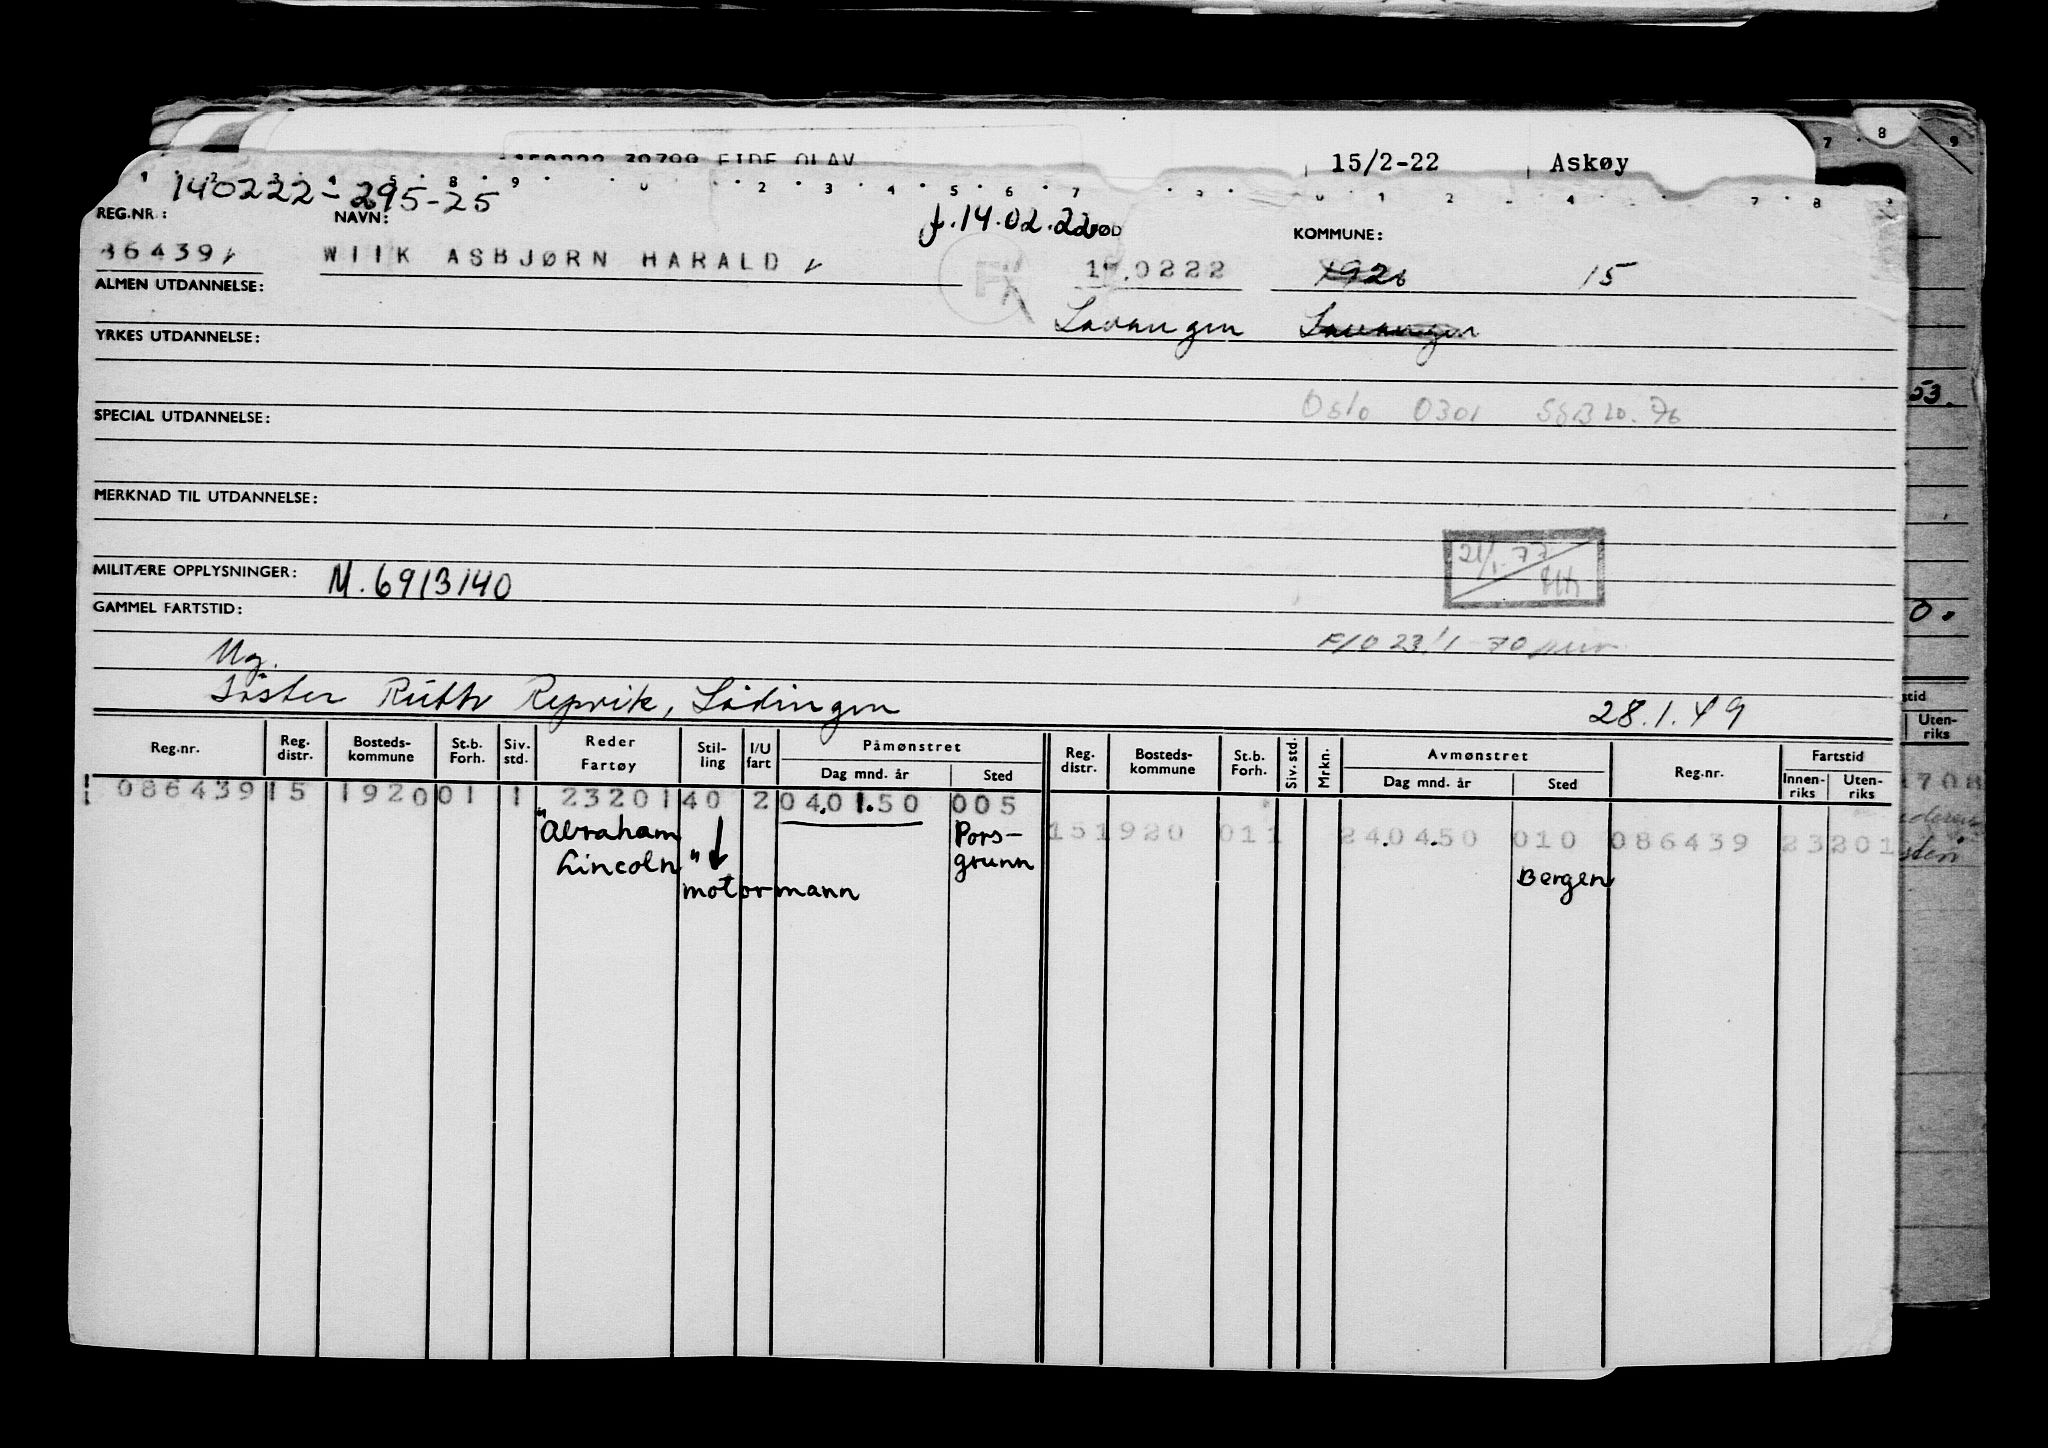 15/2-22 Askøy
140222-295-25
REG.NR.: NAVN: f.14.02.22 KOMMUNE:
86439 WIIK ASBJØRN HARALD 0222 1920 15
ALMEN UTDANNELSE:
Lavangen Lavangen
YRKES UTDANNELSE:
Oslo 0301
SPECIAL UTDANNELSE:
MERKNAD TIL UTDANNELSE:
21/1-77
MILITÆRE OPPLYSNINGER: M.6913140
GAMMEL FARTSTID:
23/1-70
Ug.
Søster Ruth Repvik, Lødingen 28.1.49
Reg.nr. Reg. distr. Bosteds-kommune St.b. Forh. Siv. std. Reder Fartøy Stil-ling I/U fart Påmønstret Reg. distr. Bosteds-kommune St.b. Forh. Siv. std. Mrkn. Avmønstret Reg.nr. Fartstid
Dag mnd. år Sted Dag mnd. år Sted Innen-riks Uten-riks
086439 15 1920 01 1 23201 40 2 04.01.50 005
"Abraham Pors- 15 1920 01 1 24.04.50 010 086439 23201
Lincoln" grunn
motormann Bergen